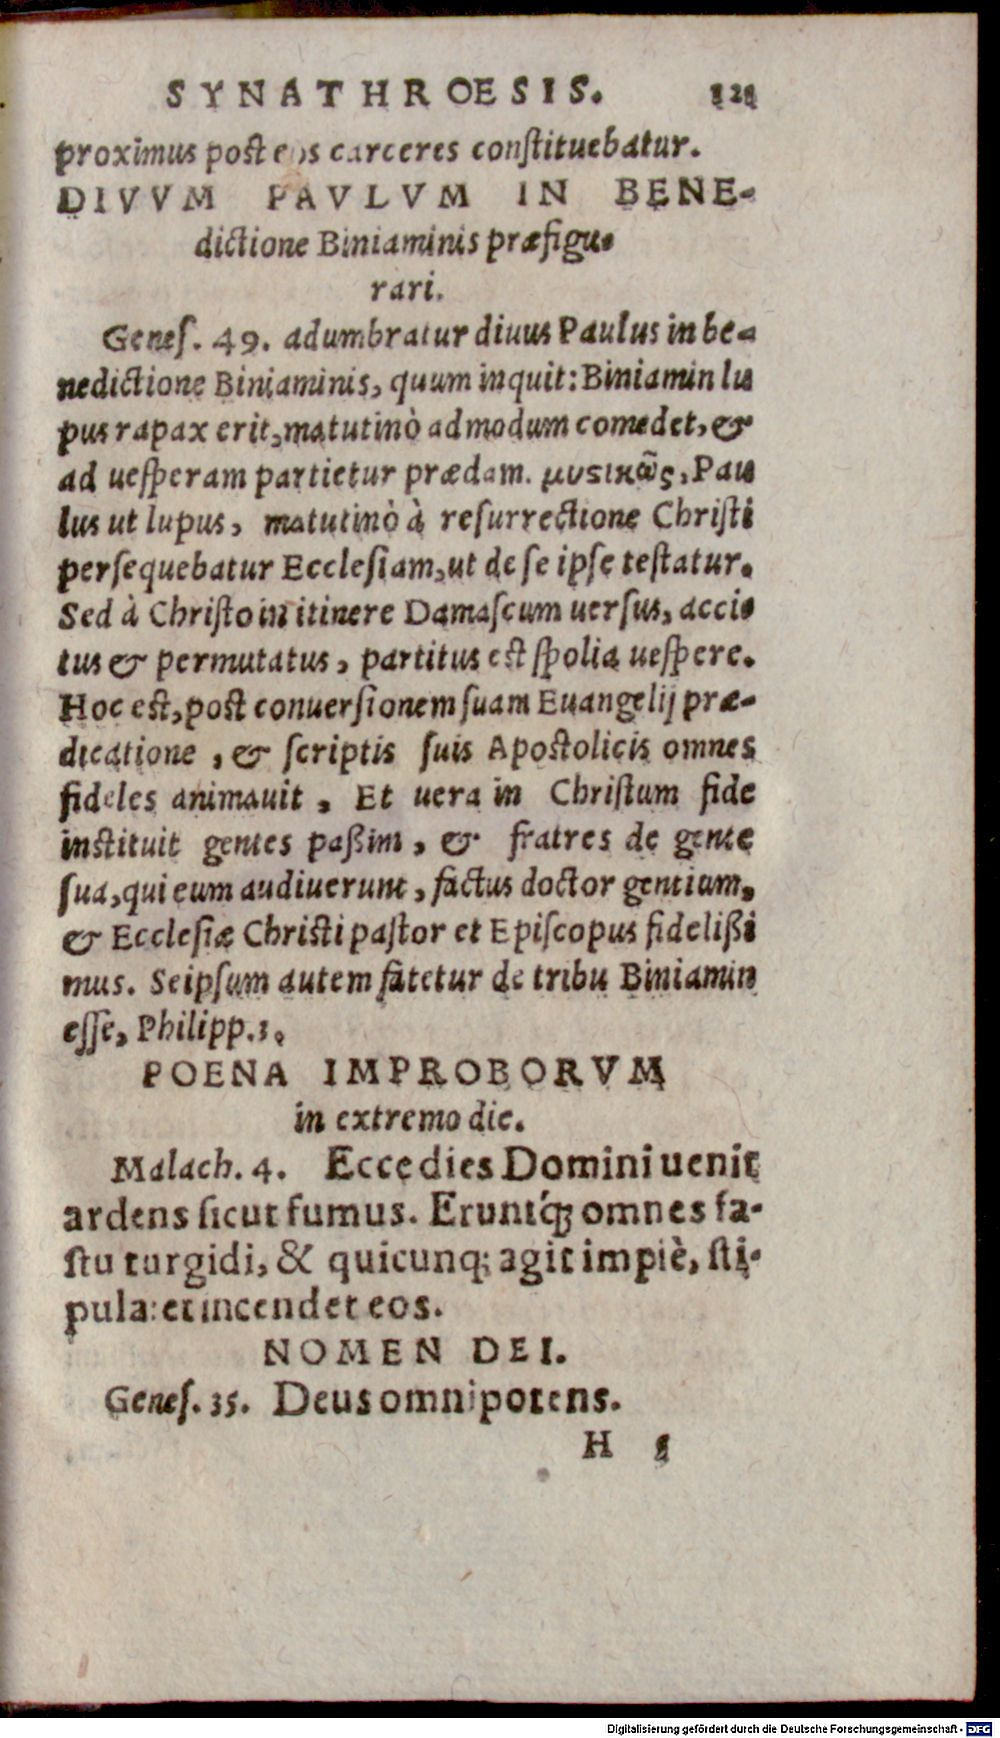 SYNATHROESIS. 121
proximus post eos carceres constituebatur.
DIVVM PAVLVM IN BENE-
dictione Biniaminis præfigu-
rari.
Genes. 49. adumbratur diuus Paulus in be-
nedictione Biniaminis, quum inquit: Biniamin lu
pus rapax erit, matutinò admodum comedet, &
ad uesperam partietur prædam. μυσικῶς, Pau
lus ut lupus, matutinò à resurrectione Christi
persequebatur Ecclesiam, ut de se ipse testatur.
Sed à Christo in itinere Damascum uersus, acci-
tus & permutatus, partitus est spolia uespere.
Hoc est, post conuersionem suam Euangelij præ-
dicatione, & scriptis suis Apostolicis omnes
fideles animauit, Et uera in Christum fide
instituit gentes paßim, & fratres de gente
sua, qui eum audiuerunt, factus doctor gentium,
& Ecclesiæ Christi pastor et Episcopus fidelißi
mus. Seipsum autem fatetur de tribu Biniamin
esse, Philipp. 3.
POENA IMPROBORVM
in extremo die.
Malach. 4. Ecce dies Domini uenit
ardens sicut fumus. Eruntq́; omnes fa-
stu turgidi, & quicunq; agit impiè, sti-
pula: et incendet eos.
NOMEN DEI.
Genes. 35. Deus omnipotens.
H
Digitalisierung gefördert durch die Deutsche Forschungsgemeinschaft - DFG